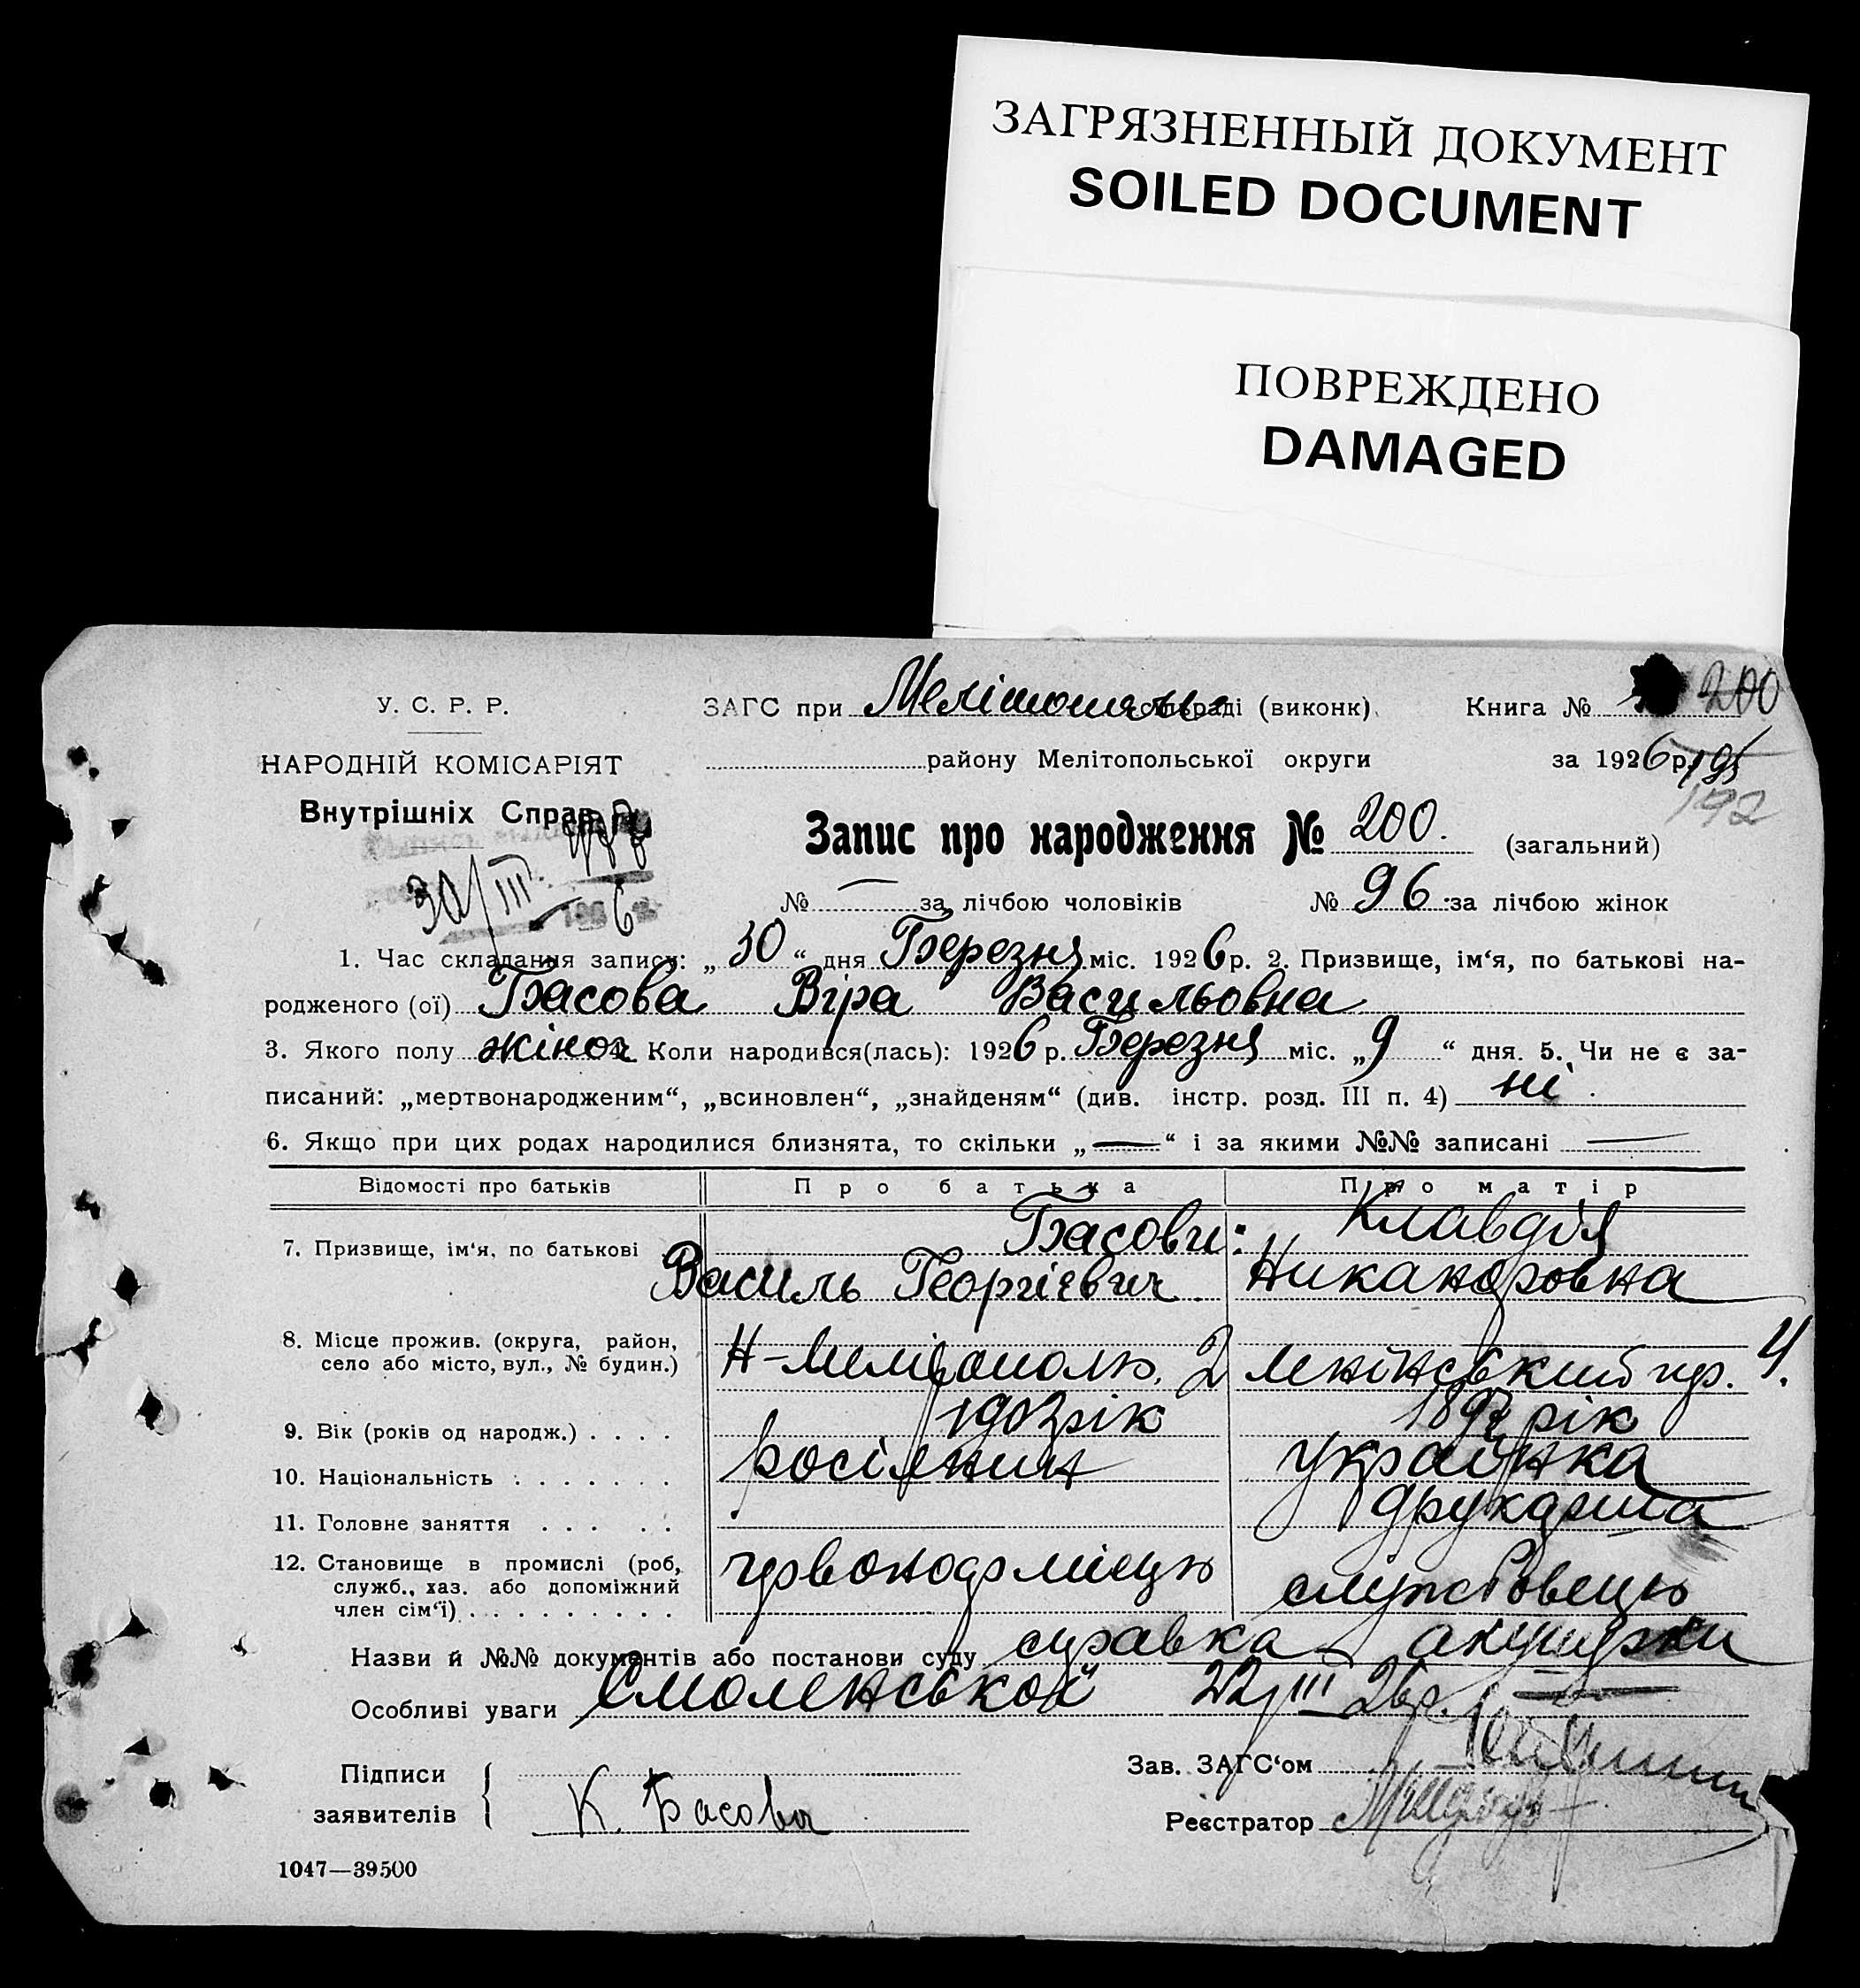 ЗАГРЯЗНЕННЫЙ ДОКУМЕНТ
SOILED DOCUMENT
ПОВРЕЖДЕНО
DAMAGED
У. С. Р. Р.
НАРОДНІЙ КОМІСАРІЯТ
Внутрішніх Справ
30/III
ЗАГС при (виконк). Книга № 200
району Мелітопольської округи за 1926 р. 195
192
Запис про народження № 200. (загальний)
№ — за лічбою чоловіків № 96 за лічбою жінок
1. Час складання запису: „30“ дня Березня міс. 1926 р. 2. Призвище, ім‘я, по батькові на-
родженого (ої) Басова Віра Васильовна
3. Якого полу жіноч 4. Коли народився(лась): 1926 р. Березня міс. „9“ дня. 5. Чи не є за-
писаний: „мертвонародженим“, „всиновлен“, „знайденям“ (див. інстр. розд. III п. 4) ні.
6. Якщо при цих родах народилися близнята, то скільки „—“ і за якими №№ записані —
Відомості про батьків Про батька Про матір
7. Призвище, ім‘я, по батькові Басови: Клавдія
Василь Георгієвич Никаноровна
8. Місце прожив. (округа, район,
село або місто, вул., № будин.) Н-Мелітополь, 2 Ленінський пр. 4.
9. Вік (років од народж.) . . . . рік рік
10. Національність . . . . . . . росіянин українка
11. Головне заняття . . . . . друкарша
12. Становище в промислі (роб,
служб., хаз. або допоміжний
член сім‘ї) . . . . . . . . . . червоноармієць службовець
Назви й №№ документів або постанови суду справка акушерки
Особливі уваги Смоленської 22/III 26 р.
Підписи
заявителів К. Басова
Зав. ЗАГС‘ом
Реєстратор
1047—39500